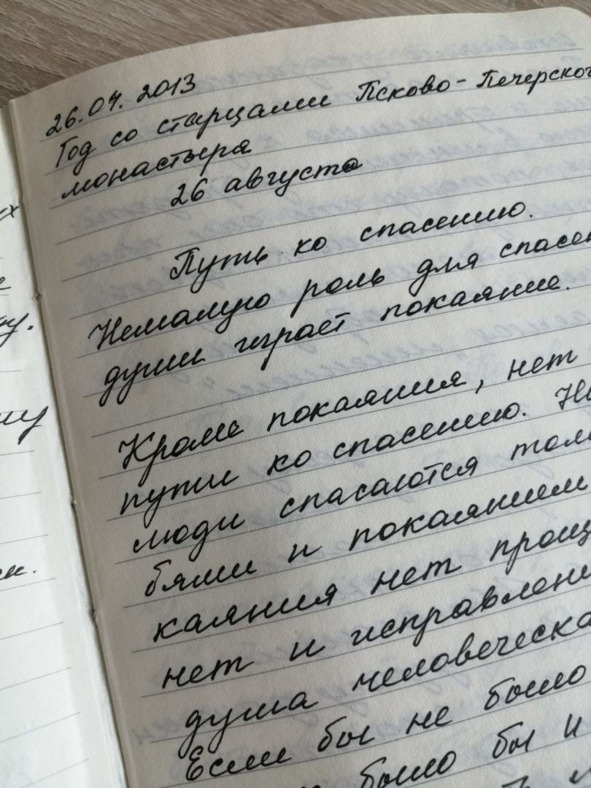 26.04. 2013
Год со старцами Псково-Печерского
монастыря
26 августа
Путь ко спасению.
Немалую роль для спасен
души играет покаяние.
Кроме покаяния, нет
пути ко спасению. Н
люди спасаются тол
бями и покаянием
каяния нет прощ
нет и исправлен
душа человеческа
Если бы не было
было бы и